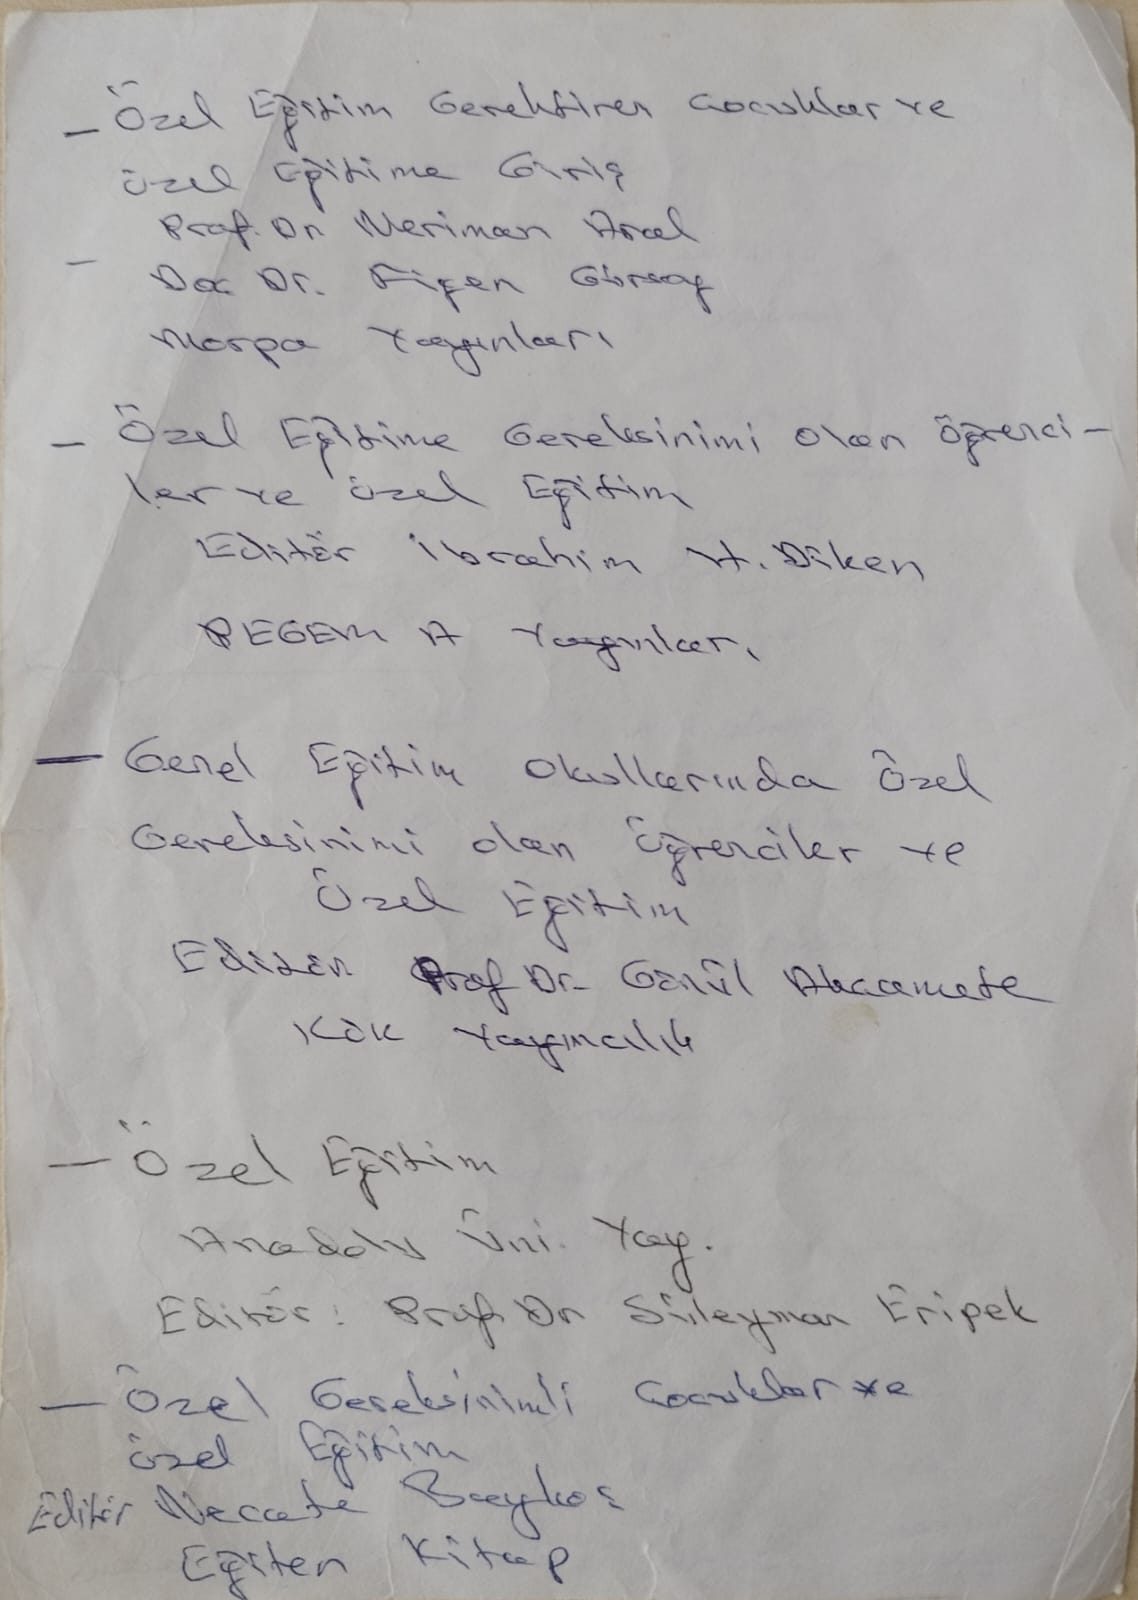 - Özel Eğitim Gerektiren Çocuklar ve
Özel Eğitime Giriş
Prof. Dr. Neriman Aral
- Doç Dr. Figen Gürsoy
Morpa Yayınları
- Özel Eğitime Gereksinimi olan öğrenci-
ler ve özel Eğitim
Editör İbrahim H. Diken
PEGEM A Yayınları
- Genel Eğitim Okullarında Özel
Gereksinimi olan Öğrenciler ve
Özel Eğitim
Editör Prof Dr. Gönül Akçamete
KÖK Yayıncılık
- Özel Eğitim
Anadolu Üni. Yay.
Editör: Prof Dr Süleyman Eripek
- Özel Gereksinimli Çocuklar ve
özel Eğitim
Editör Necate Baykoç
Eğiten Kitap